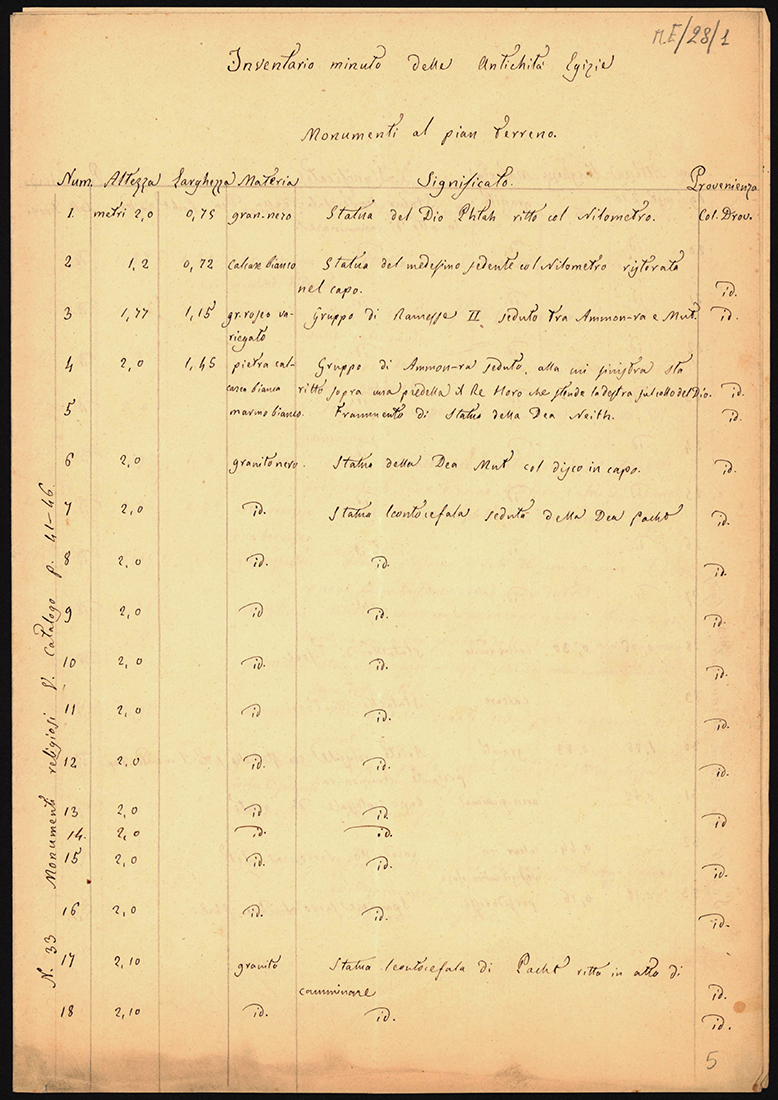 M.E/28/1
Inventario minuto delle Antichità Egizie
Monumenti al pian terreno.
Num. Altezza Larghezza Materia Significato. Provenienza
1. metri 2,0 0,75 gran. nero Statua del Dio Phtah ritto col Nilometro. Col. Drov.
2 1,2 0,72 Calcare bianco Statua del medesimo sedente col Nilometro ristorata
nel capo. id.
3 1,77 1,15 gr. roseo va- Gruppo di Ramesse II seduto tra Ammon-ra e Mut. id.
riegato
4 2,0 1,45 pietra cal- Gruppo di Ammon-ra seduto, alla cui sinistra sta
carea bianca ritto sopra una predella il Re Horo che stende la destra sul collo del Dio. id.
5 marmo bianco. Frammento di Statua della Dea Neith. id.
6 2,0 granito nero. Statua della Dea Mut col disco in capo. id.
7 2,0 id. Statua leontocefala seduta della Dea Pacht id.
8 2,0 id. id. id.
9 2,0 id id. id.
10 2,0 id. id. id.
11 2,0 id id. id.
12 2,0 id. id. id.
13 2,0 id id. id
14. 2,0 id. id.
15 2,0 id. id. id.
16 2,0 id. id. id.
17 2,10 granito Statua leontocefala di Pacht ritta in atto di
camminare id.
18 2,10 id. id. id.
N. 33 Monumenti religiosi V. Catalogo p. 41-46
5